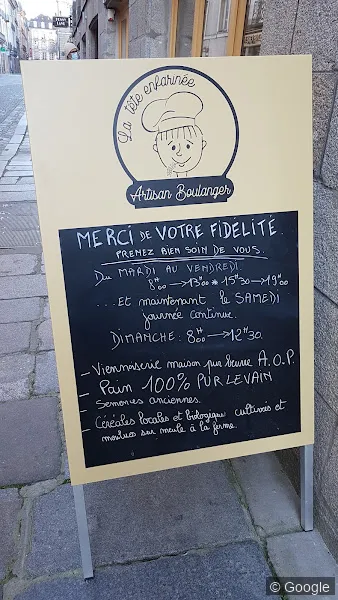 La tête enfarinée
Artisan Boulanger
MERCI DE VOTRE FIDELITÉ.
PRENEZ BIEN SOIN DE VOUS.
DU MARDI AU VENDREDI.
8H00 → 13H00 * 15H30 → 19H00
....Et maintenant le SAMEDI
journée continue.
DIMANCHE: 8H00 → 12H30.
- Viennoiserie maison pur beurre A.O.P.
- Pain 100% PUR LEVAIN
- Semences anciennes.
- Céréales locales et biologiques cultivées et
moulues sur meule à la ferme.
© Google